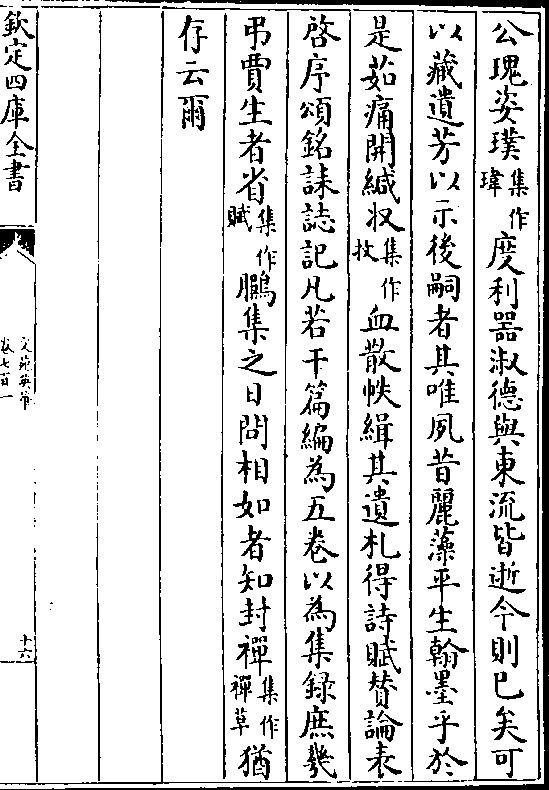 公瑰姿璞集作瑋度利器淑德與東流皆逝今則已矣可
以藏遺芳以示後嗣者其唯夙昔麗藻平生翰墨乎於
是茹痛開緘收集作抆血散帙緝其遺札得詩賦贊論表
啓序頌銘誄誌記凡若干篇編為五卷以為集録庶㡬
弔賈生者省集作賦鵩集之日問相如者知封禪集作禪草猶
存云爾
欽定四庫全書
文苑英華
卷七百一
十六